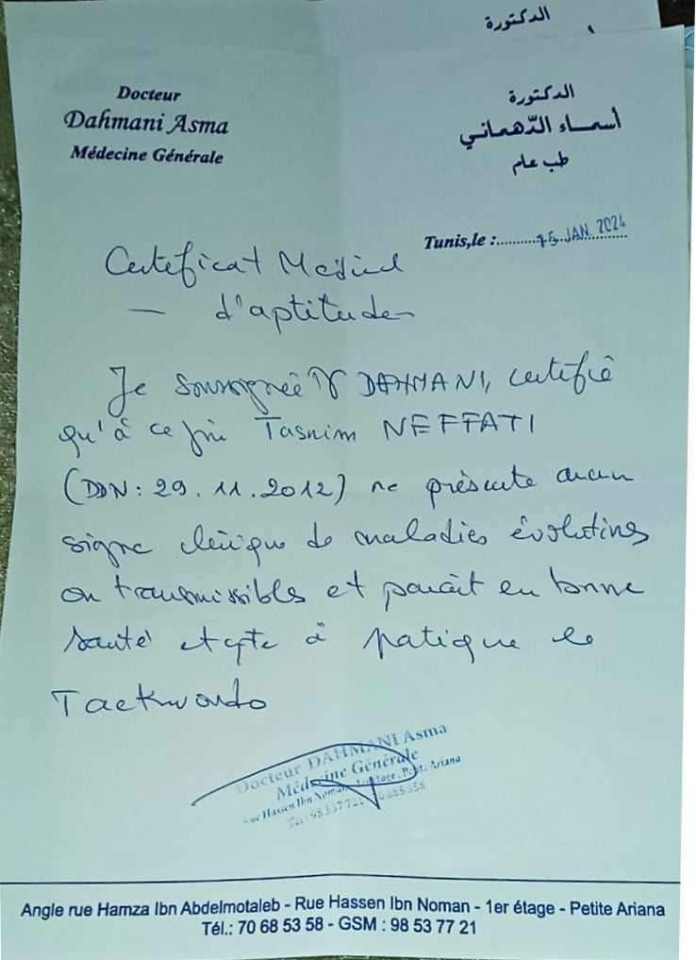 الدكتورة
Docteur
Dahmani Asma
Médecine Générale
الدكتورة
أسماء الدّهماني
طب عام
Tunis,le :..........15 JAN. 2024
Certificat Médical
— d'aptitude
Je soussignée Dr DAHMANI, certifie
qu'à ce jour Tasnim NEFFATI
(DDN: 29.11.2012) ne présente aucun
signe clinique de maladies évolutives
ou transmissibles et parait en bonne
santé et apte à pratique le
Taekwondo
Docteur DAHMANI Asma
Médecine Générale
Rue Hassen Ibn Noman, Petite Ariana
Angle rue Hamza Ibn Abdelmotaleb - Rue Hassen Ibn Noman - 1er étage - Petite Ariana
Tél.: 70 68 53 58 - GSM : 98 53 77 21